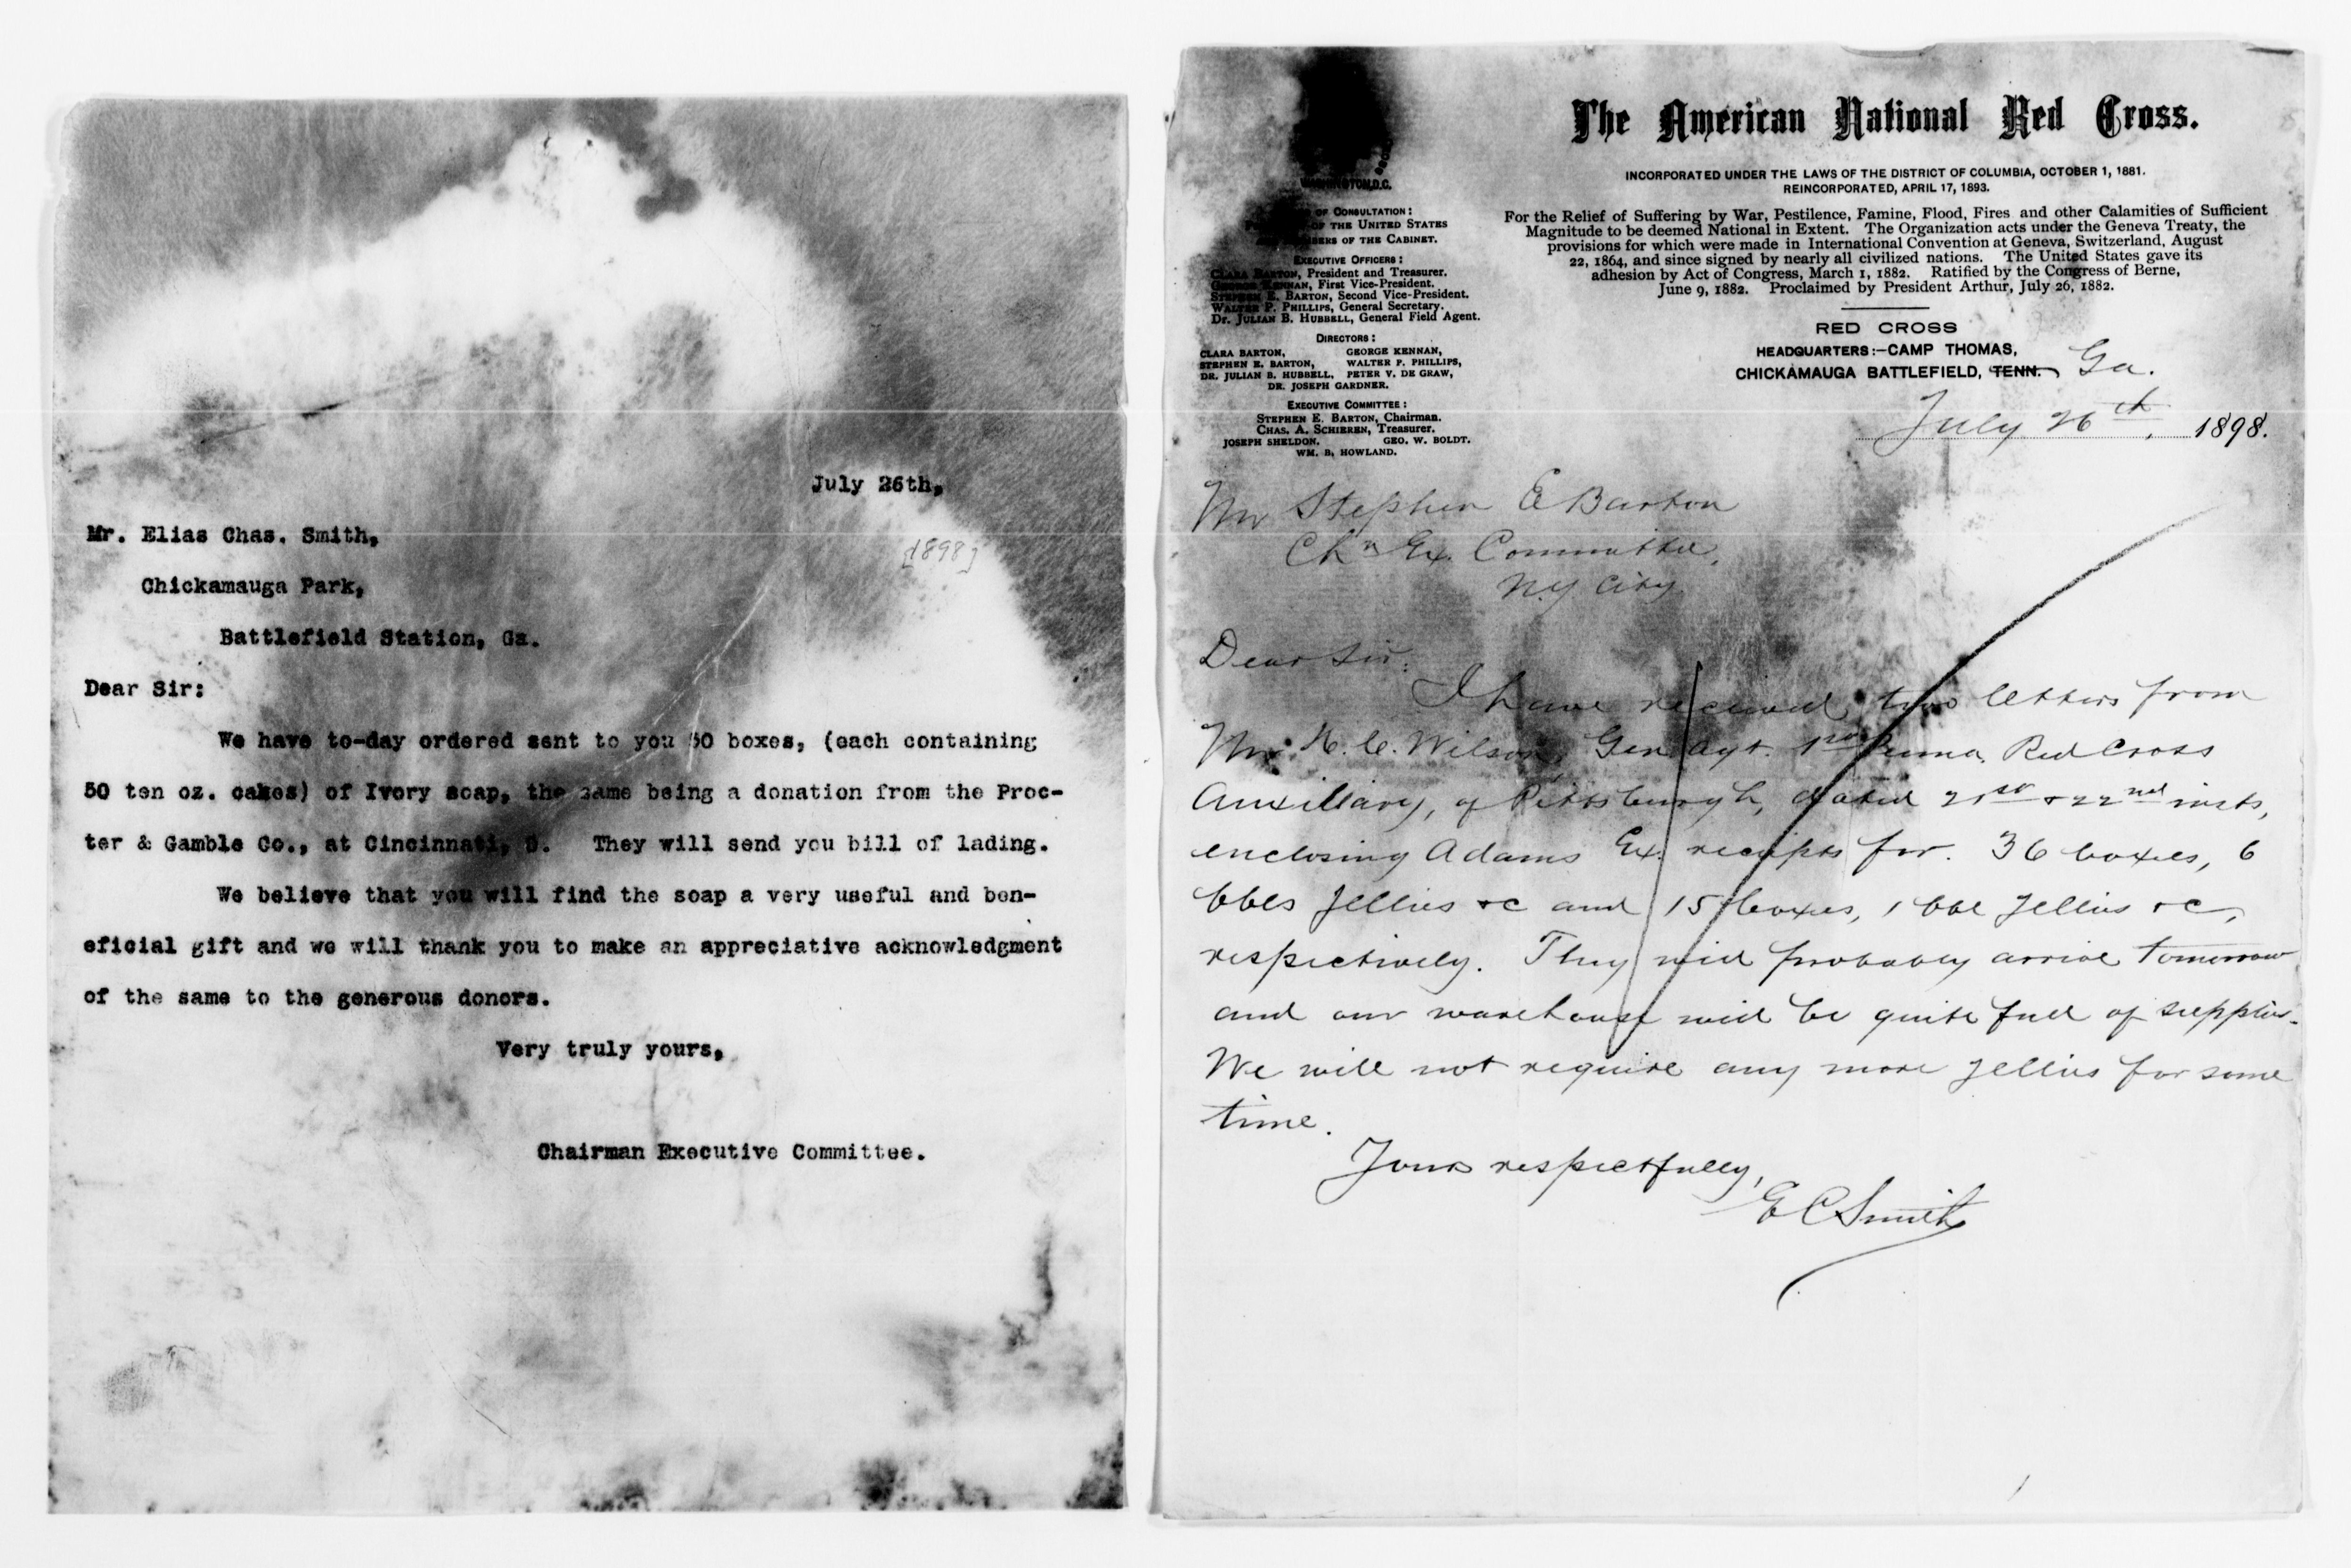 July 26th,
[1898]
Mr. Elias Chas. Smith,
Chickamauga Park,
Battlefield Station, Ga.
Dear Sir:
We have to-day ordered sent to you 50 boxes, (each containing
50 ten oz. cakes) of Ivory soap, the same being a donation from the Proc-
ter & Gamble Co., at Cincinnati, O. They will send you bill of lading.
We believe that you will find the soap a very useful and ben-
eficial gift and we will thank you to make an appreciative acknowledgment
of the same to the generous donors.
Very truly yours,
Chairman Executive Committee.
The American National Red Cross.
INCORPORATED UNDER THE LAWS OF THE DISTRICT OF COLUMBIA, OCTOBER 1, 1881.
REINCORPORATED, APRIL 17, 1893.
For the Relief of Suffering by War, Pestilence, Famine, Flood, Fires and other Calamities of Sufficient
Magnitude to be deemed National in Extent. The Organization acts under the Geneva Treaty, the
provisions for which were made in International Convention at Geneva, Switzerland, August
22, 1864, and since signed by nearly all civilized nations. The United States gave its
adhesion by Act of Congress, March 1, 1882. Ratified by the Congress of Berne,
June 9, 1882. Proclaimed by President Arthur, July 26, 1882.
WASHINGTON, D.C.
OF CONSULTATION:
OF THE UNITED STATES
MEMBERS OF THE CABINET.
EXECUTIVE OFFICERS:
CLARA BARTON, President and Treasurer.
GEORGE KENNAN, First Vice-President.
STEPHEN E. BARTON, Second Vice-President.
WALTER P. PHILLIPS, General Secretary.
Dr. JULIAN B. HUBBELL, General Field Agent.
DIRECTORS:
CLARA BARTON, GEORGE KENNAN,
STEPHEN E. BARTON, WALTER P. PHILLIPS,
DR. JULIAN B. HUBBELL, PETER V. DE GRAW,
DR. JOSEPH GARDNER.
EXECUTIVE COMMITTEE:
STEPHEN E. BARTON, Chairman.
CHAS. A. SCHIEREN, Treasurer.
JOSEPH SHELDON. GEO. W. BOLDT.
WM. B. HOWLAND.
RED CROSS
HEADQUARTERS:—CAMP THOMAS,
CHICKAMAUGA BATTLEFIELD, TENN. Ga.
July 26th, 1898.
Mr Stephen E Barton
Chn Ex. Committee,
N.Y City
Dear Sir:
I have received two letters from
Mr. H. C. Wilson, Gen. Agt. Penna. Red Cross
Auxiliary, of Pittsburgh, dated 21st & 22nd insts,
enclosing Adams Ex. receipts for. 36 boxes, 6
bbls Jellies &c and 15 boxes, 1 bbl Jellies &c,
respectively. They will probably arrive tomorrow
and our warehouse will be quite full of supplies.
We will not require any more Jellies for some
time.
Yours respectfully,
E C Smith